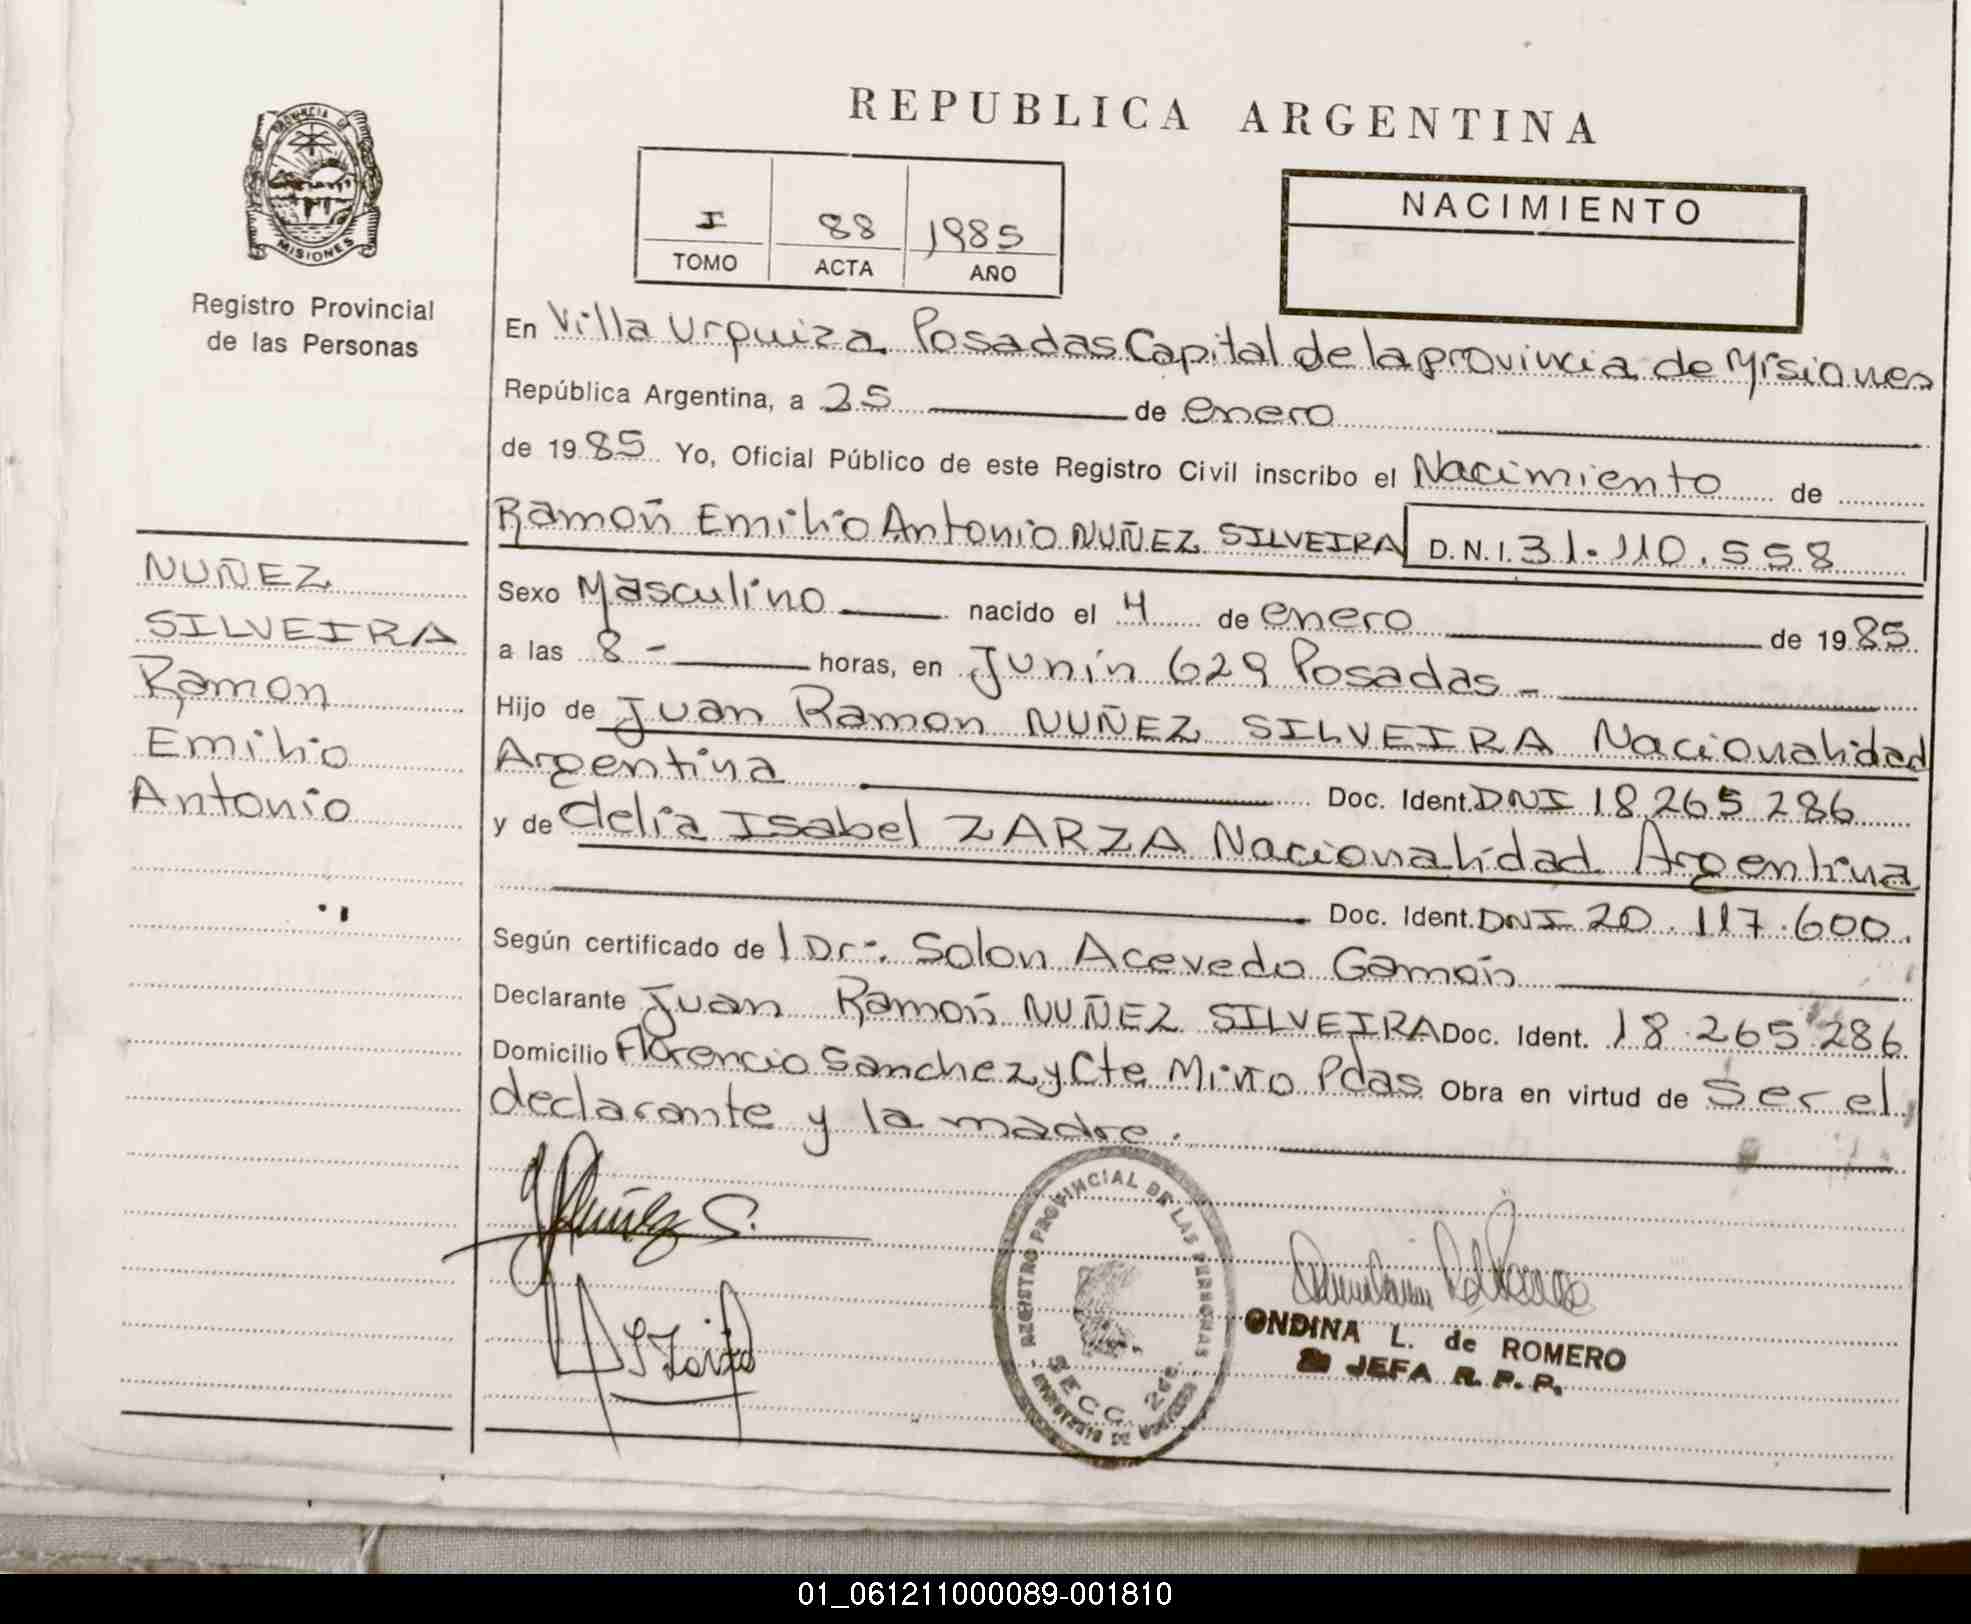 PROVINCIA DE
MISIONES
Registro Provincial
de las Personas
NUÑEZ
SILVEIRA
Ramon
Emilio
Antonio
REPUBLICA ARGENTINA
I 88 1985
TOMO ACTA AÑO
NACIMIENTO
En Villa Urquiza Posadas Capital de la provincia de Misiones
República Argentina, a 25 de enero
de 1985 Yo, Oficial Público de este Registro Civil inscribo el Nacimiento de
Ramón Emilio Antonio NUÑEZ SILVEIRA D.N.I. 31.110.558
Sexo Masculino nacido el 4 de enero de 1985
a las 8- horas, en Junín 629 Posadas-
Hijo de Juan Ramon NUÑEZ SILVEIRA Nacionalidad
Argentina Doc. Ident. DNI 18.265 286
y de Celia Isabel ZARZA Nacionalidad Argentina
Doc. Ident. DNI 20.117.600.
Según certificado de l Dr.: Solon Acevedo Gamón
Declarante Juan Ramón NUÑEZ SILVEIRA Doc. Ident. 18.265.286
Domicilio Florencio Sanchez y Cte Mirto Pdas Obra en virtud de Ser el
declarante y la madre.
Nuñez S.
REGISTRO PROVINCIAL DE LAS PERSONAS
SECC. 2da.
ONDINA L. de ROMERO
JEFA R. P. P.
01_061211000089-001810